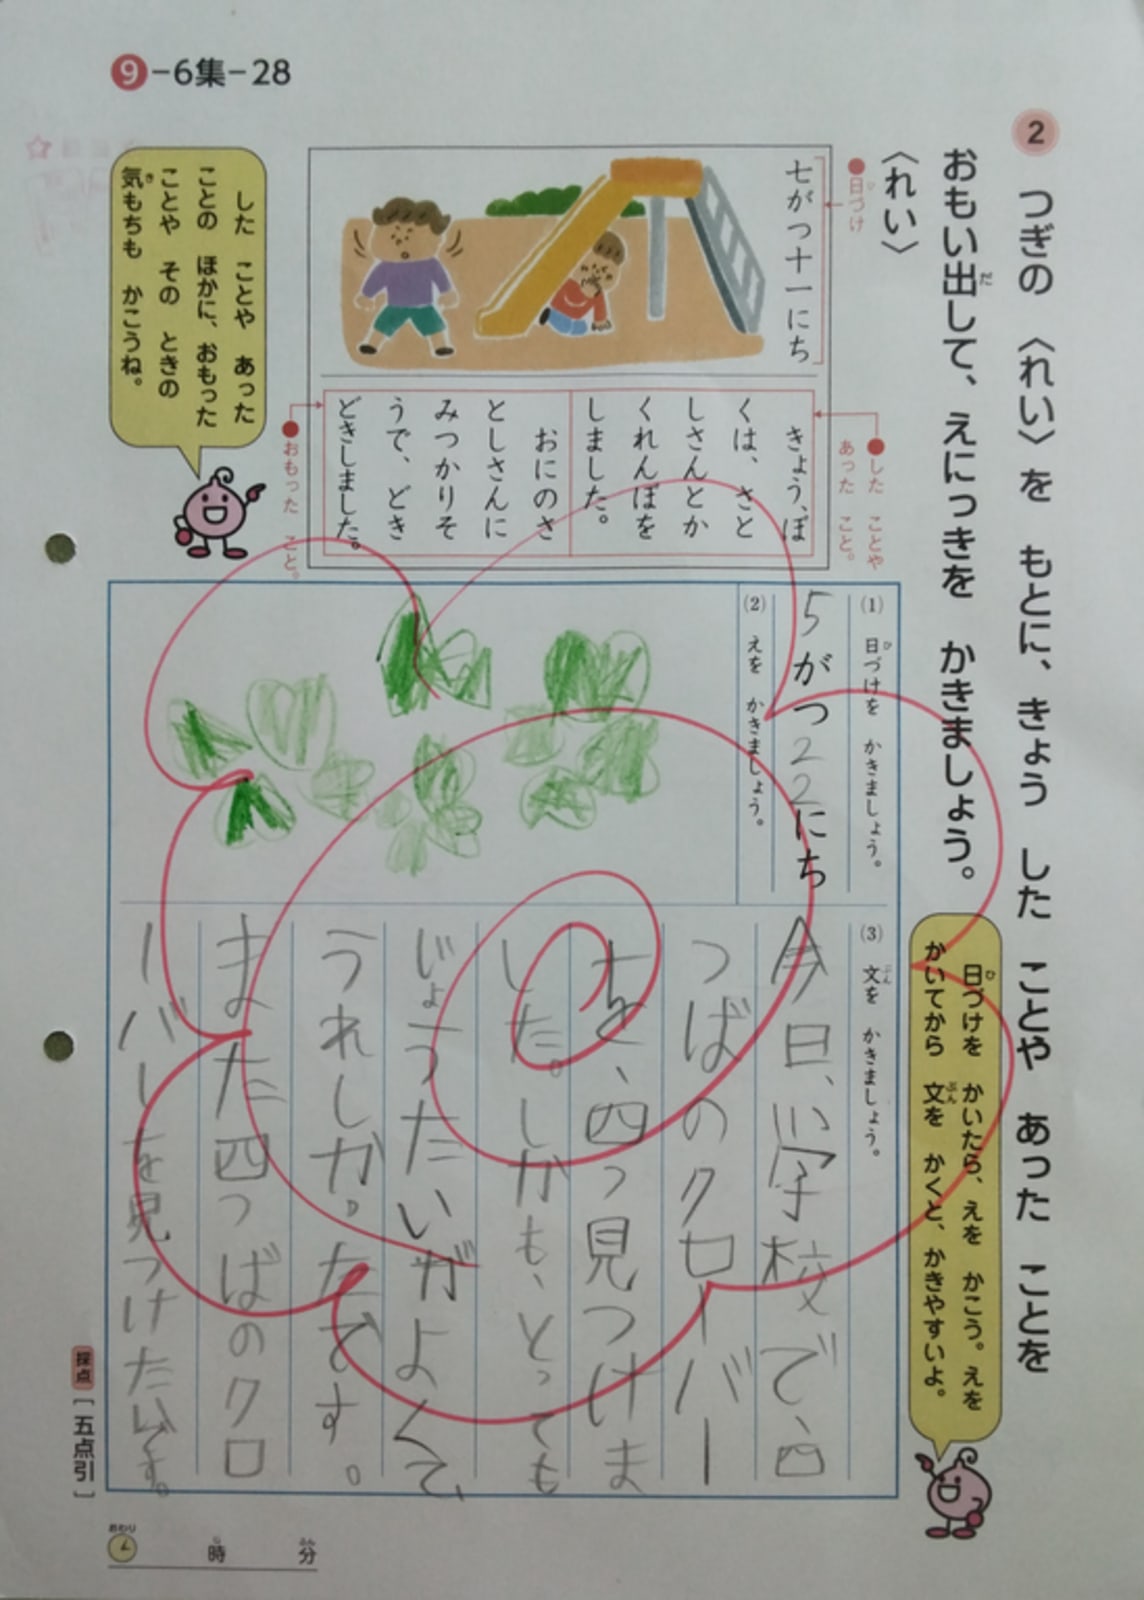 ❾-6集-28
2 つぎの 〈れい〉を もとに、きょう した ことや あった ことを
おもい出して、えにっきを かきましょう。
だ
〈れい〉
●日づけ
ひ
七がつ十一にち
●した ことや
あった こと。
きょう、ぼ
くは、さと
しさんとか
くれんぼを
しました。
おにのさ
としさんに
みつかりそ
うで、どき
どきしました。
●おもった こと。
した ことや あった
ことの ほかに、おもった
ことや その ときの
気もちも かこうね。
き
日づけを かいたら、えを かこう。えを
ひ
かいてから 文を かくと、かきやすいよ。
ぶん
(1) 日づけを かきましょう。
ひ
5がつ22にち
(2) えを かきましょう。
(3) 文を かきましょう。
ぶん
今日、小学校で、四
つばのクローバー
を、四つ見つけま
した。しかも、とっても
じょうたいがよくて、
うれしか
たです。
また四つばのクロ
ーバーを見つけたいです。
採点[五点引]
おわり
時 分
じ ふん